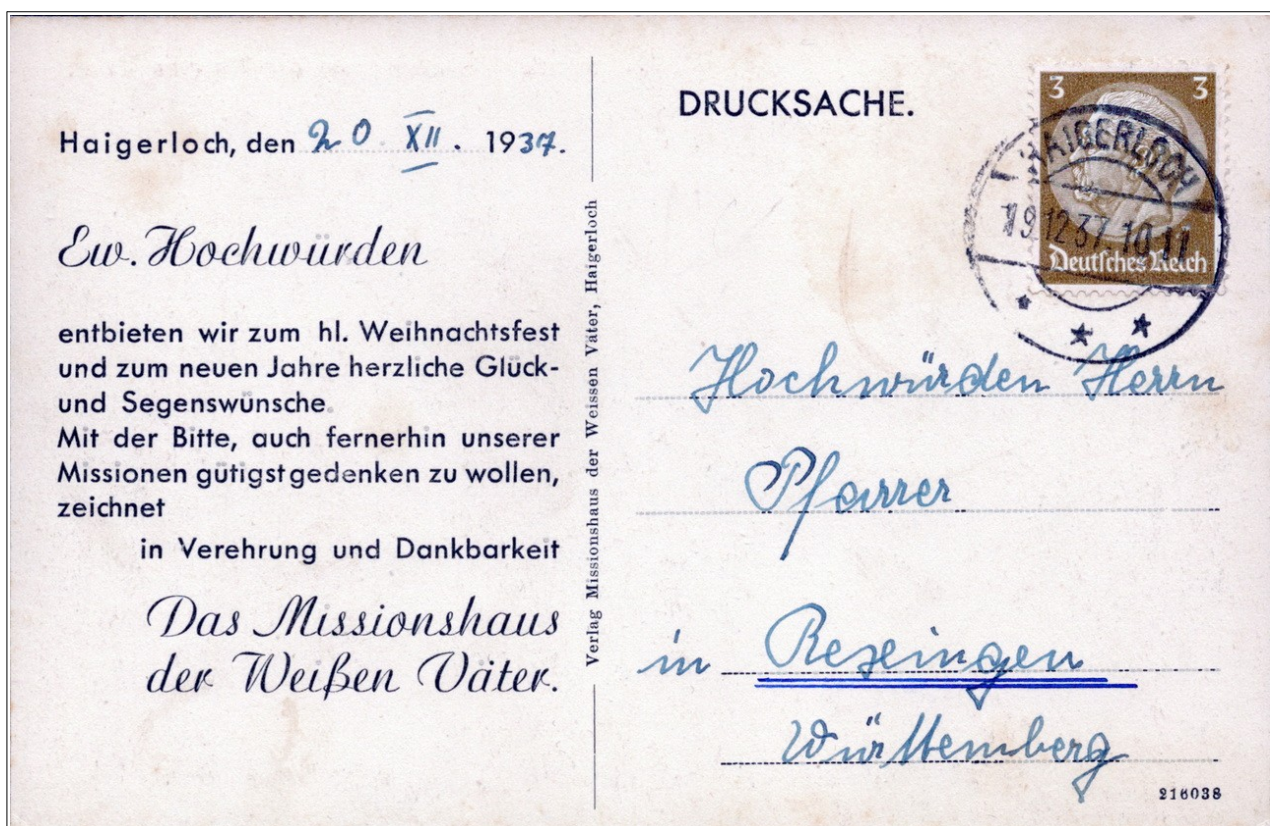 Haigerloch, den 20 XII. 1937.
Ew. Hochwürden
entbieten wir zum hl. Weihnachtsfest
und zum neuen Jahre herzliche Glück-
und Segenswünsche.
Mit der Bitte, auch fernerhin unserer
Missionen gütigst gedenken zu wollen,
zeichnet
in Verehrung und Dankbarkeit
Das Missionshaus
der Weißen Väter.
Verlag Missionshaus der Weissen Väter, Haigerloch
DRUCKSACHE.
3 3
Deutsches Reich
HAIGERLOCH
19.12.37. 10-11
Hochwürden Herrn
Pfarrer
in
Württemberg
216038